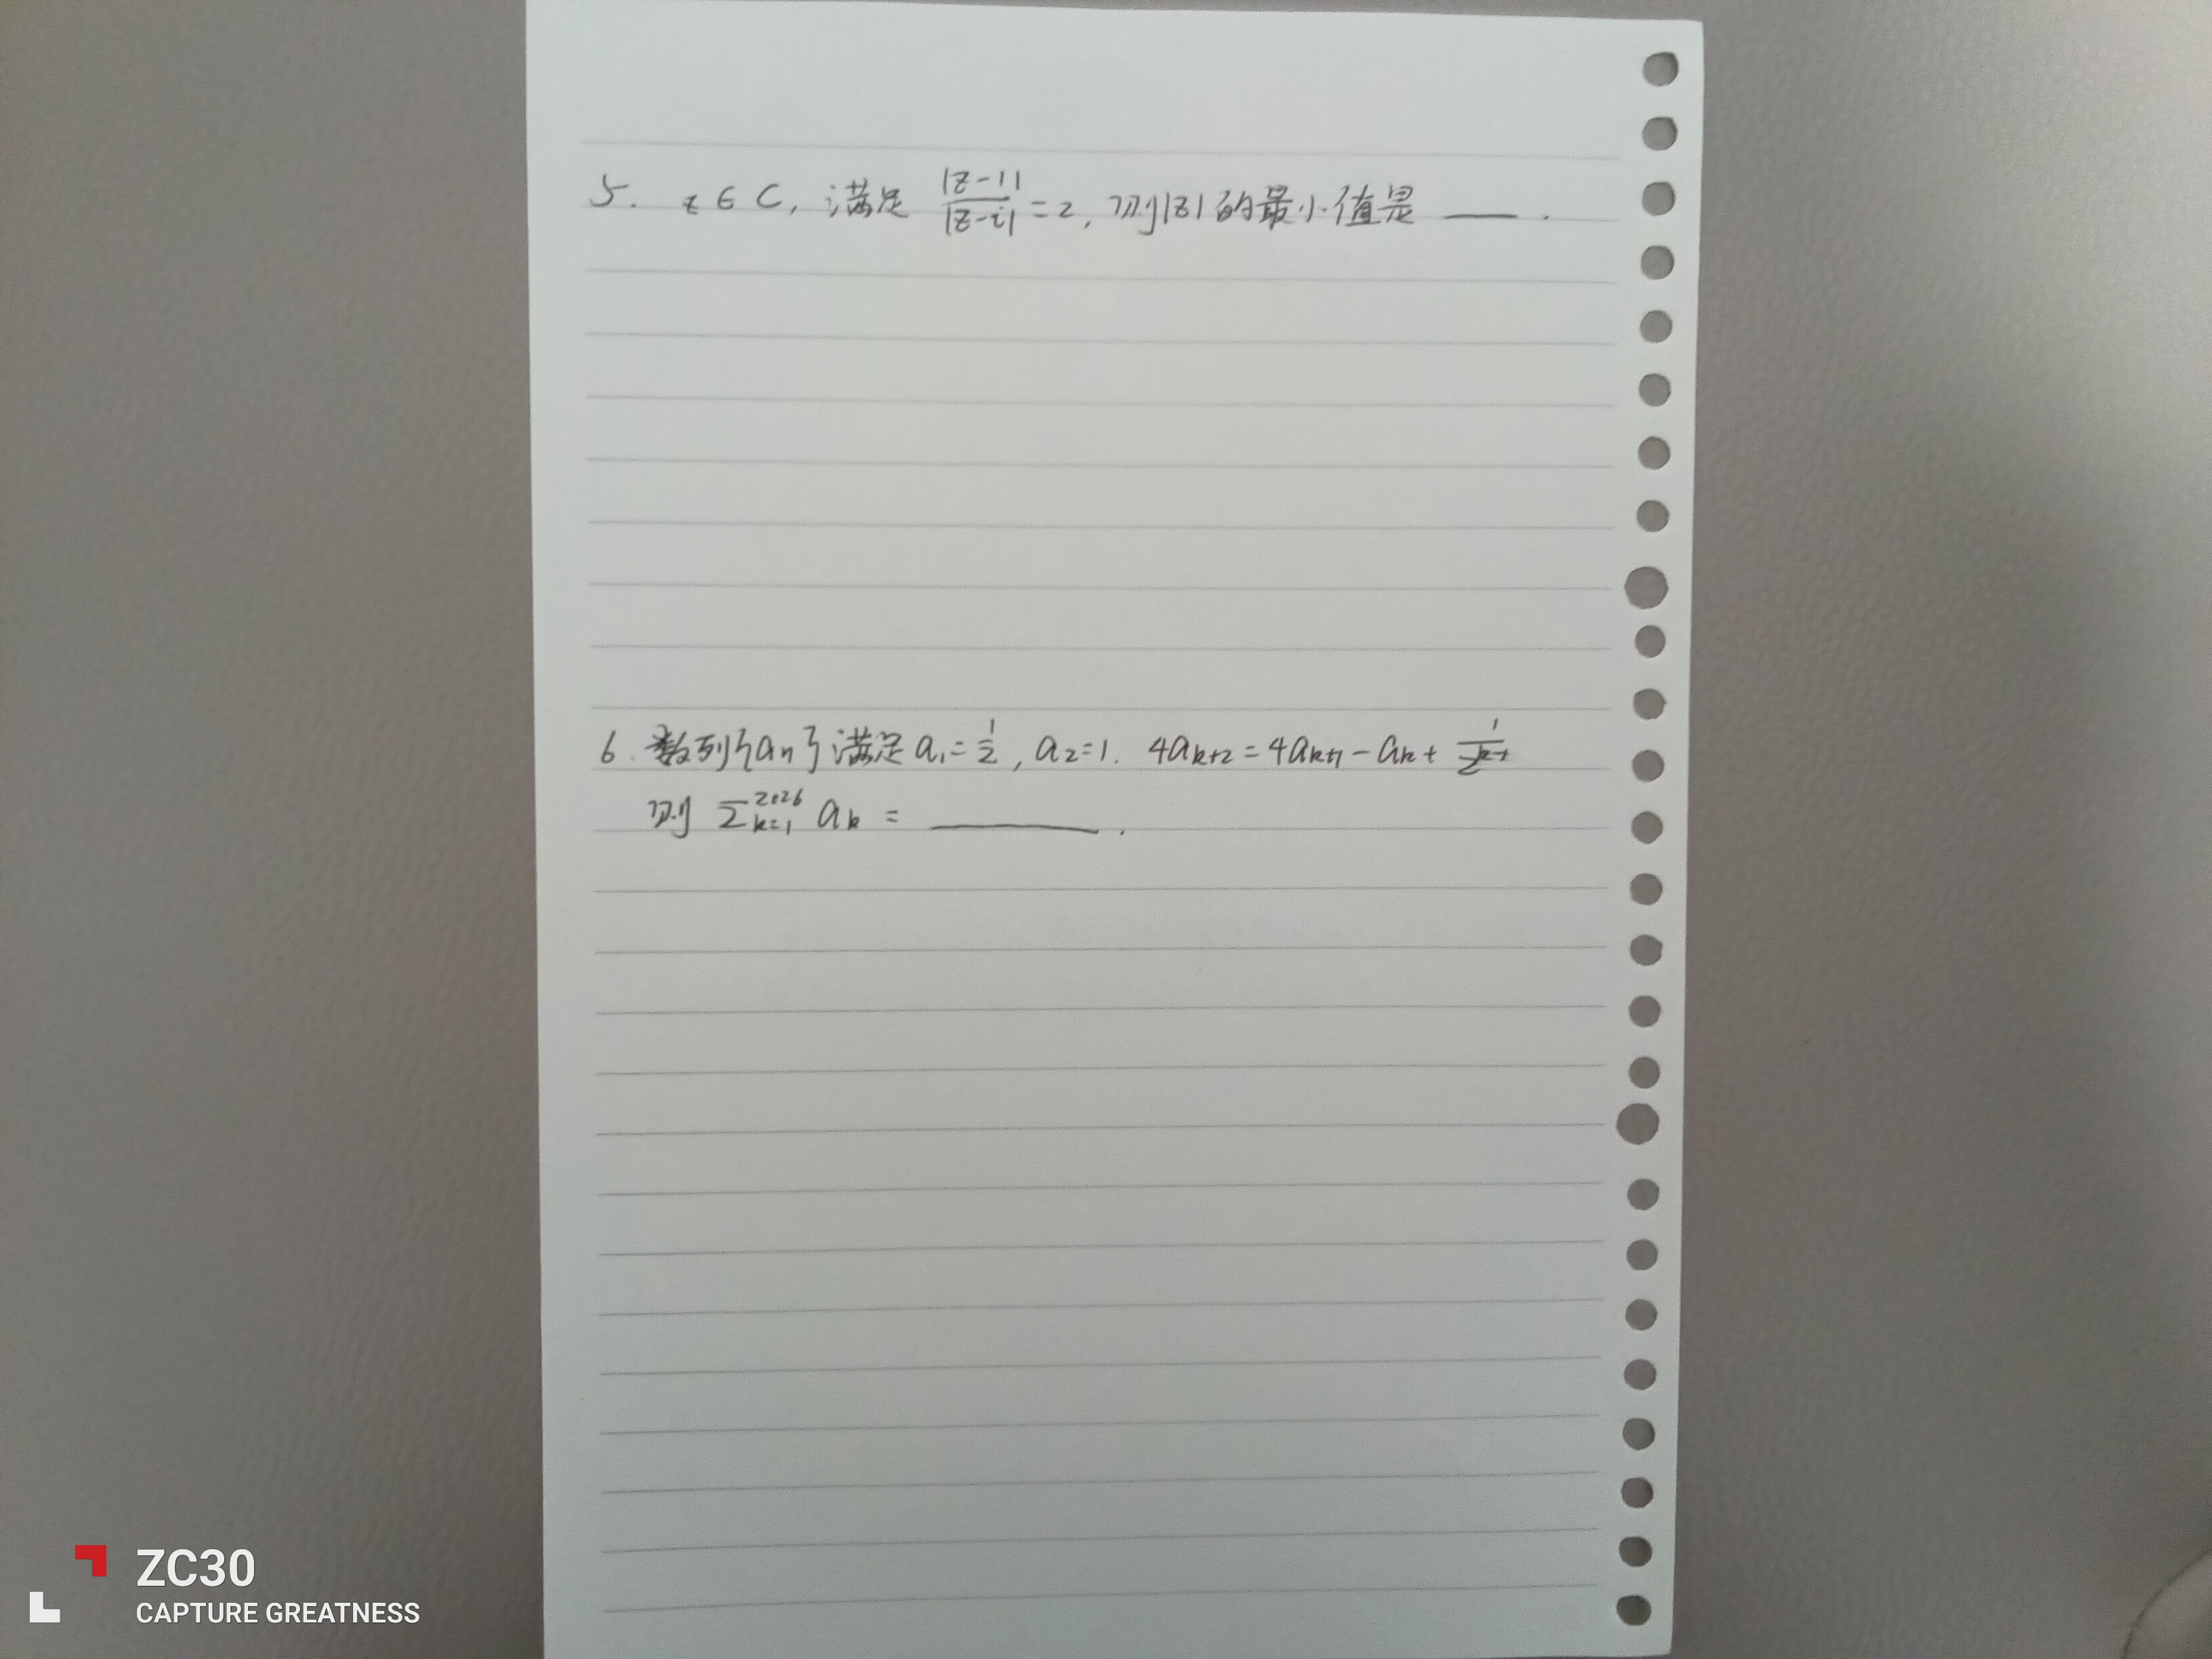 5. z∈C, 满足 |z-1|/|z-i| =2, 则|z|的最小值是 ___.
6. 数列{an}满足a₁=1/2, a₂=1. 4aₖ₊₂=4aₖ₊₁-aₖ+
则 Σₖ₌₁²⁰²⁶ aₖ = ______.
ZC30
CAPTURE GREATNESS